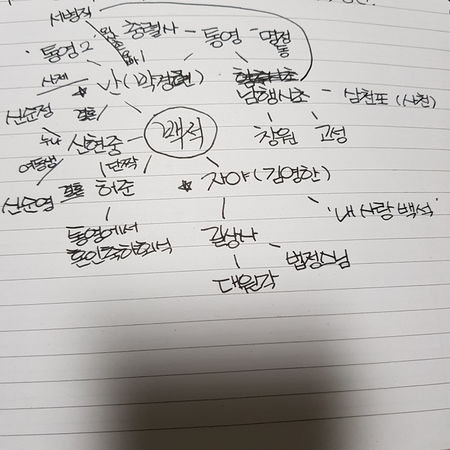 서병직
통영2 충렬사 - 통영 - 명정
동
사제 ★ 난(박경련)
남행시초 - 삼천포(사천)
신순정 결혼
누나 신현중 - 백석
창원 고성
여동생 단짝
신순영 결혼 허준 ★ 자야(김영한)
'내 사랑 백석'
통영에서
혼인축하회석
길상사
법정스님
대원각